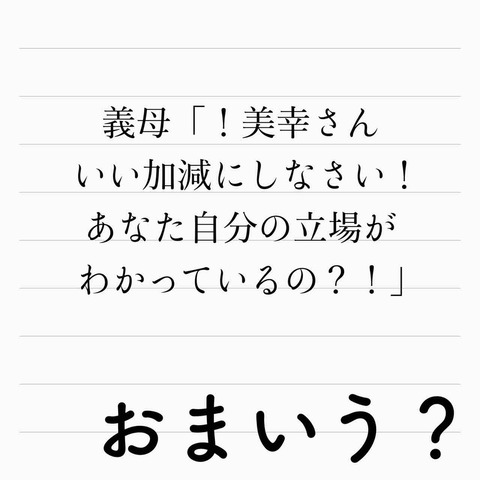 義母「！美幸さん
いい加減にしなさい！
あなた自分の立場が
わかっているの？！」
おまいう？